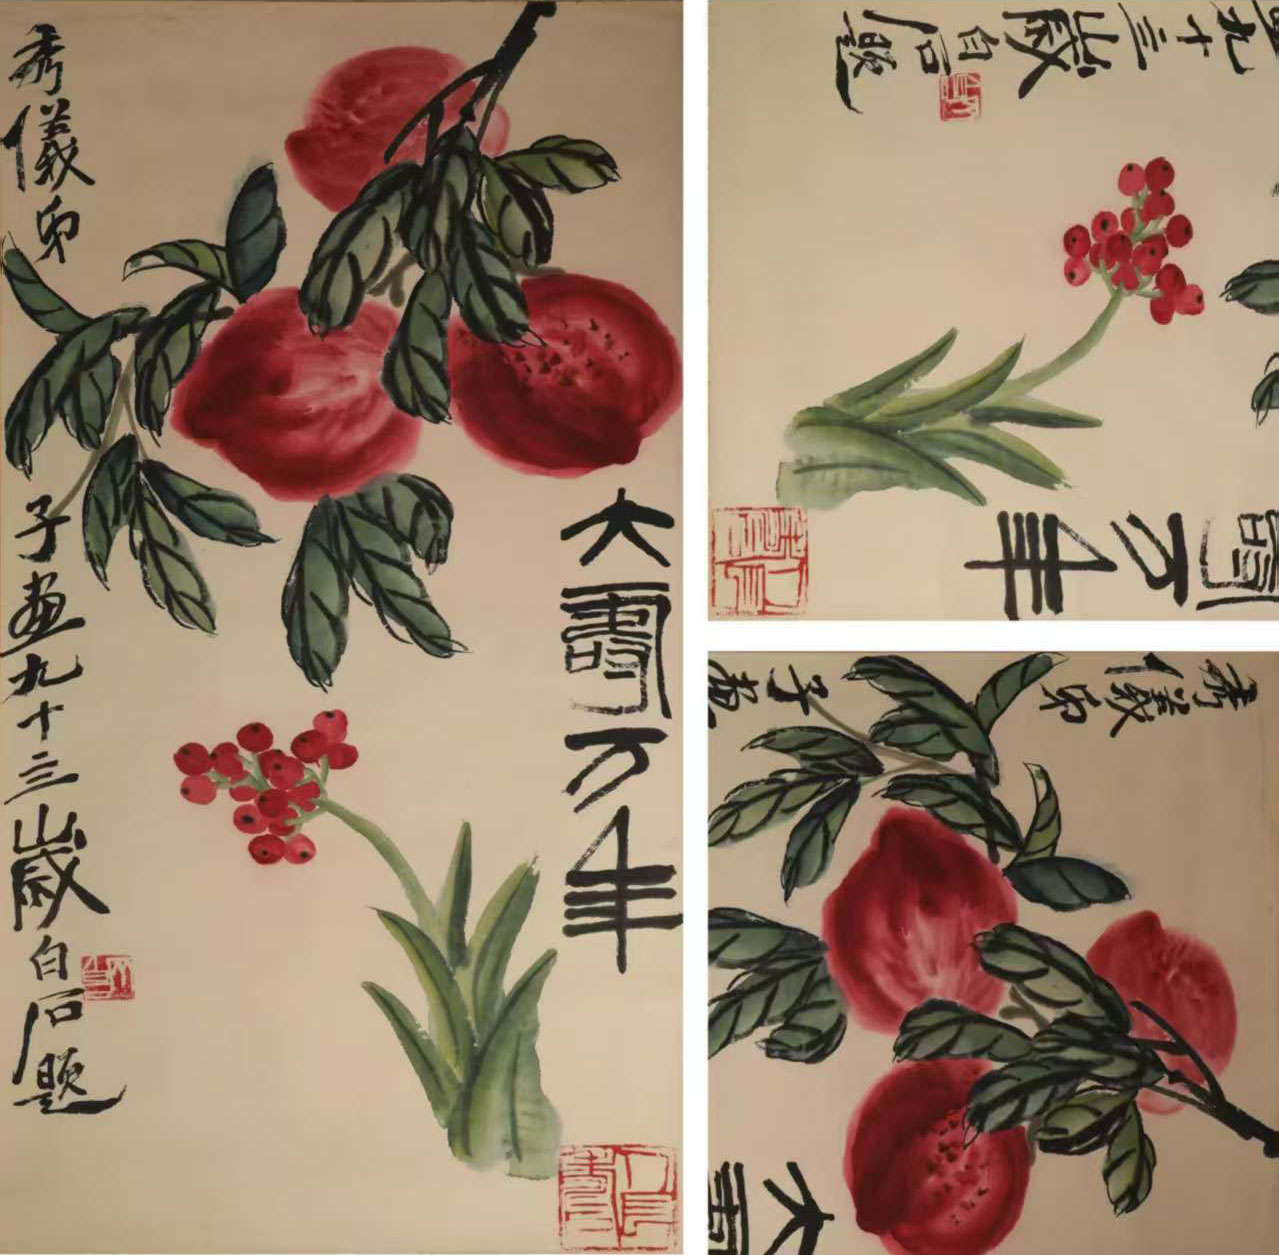 大
壽
万
年
秀
儀
子
畫
九
十
三
歲
白
石
題
九十三歲
白石題
万年
秀儀
子
大